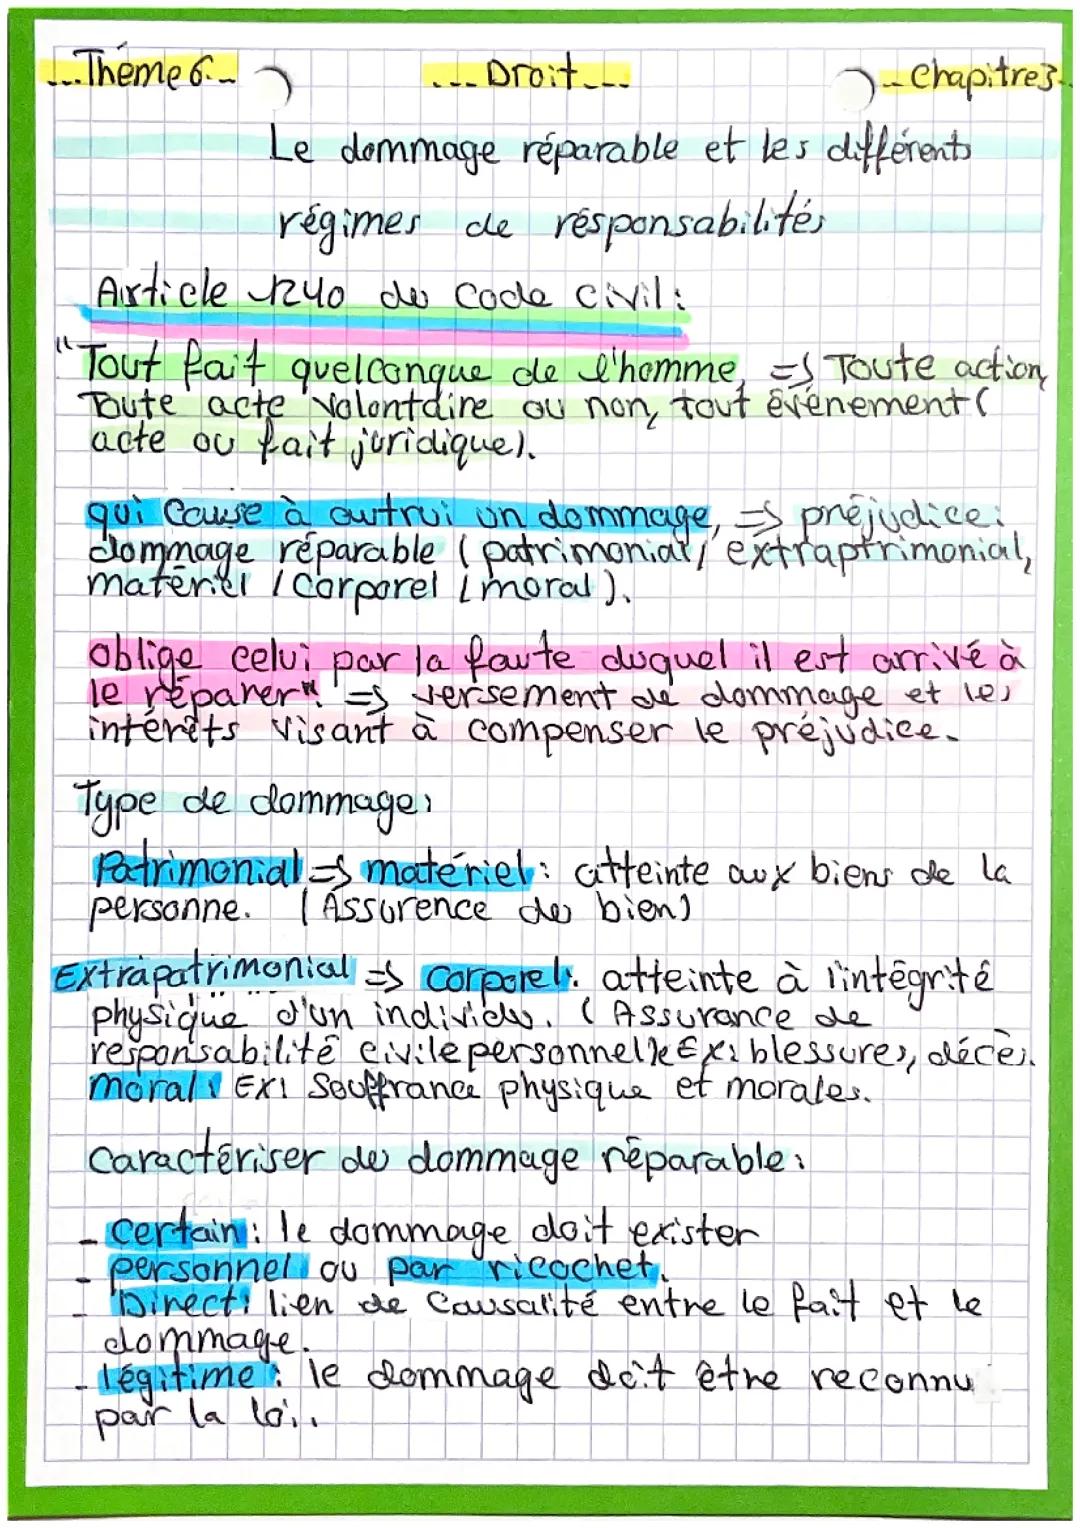 Thème 6
Droit
Chapitre 3
Le dommage réparable et les différents
régimes de résponsabilités
Article 1240 du Code Civil :
"Tout fait quelconque de l'homme, => Toute action,
Toute acte volontaire ou non, tout évènement (
acte ou fait juridique).
qui cause à autrui un dommage, => préjudice :
dommage réparable ( patrimonial / extraptrimonial,
matériel / Corporel / moral ).
oblige celui par la faute duquel il est arrivé à
le réparer". => versement de dommage et les
intérêts visant à compenser le préjudice.
Type de dommage :
Patrimonial => matériel : atteinte aux biens de la
personne. ( Assurence des bien)
Extrapatrimonial => corporel : atteinte à l'intégrité
physique d'un individu. ( Assurance de
responsabilité civile personnelle Ex : blessures, décès.
moral : EX : Souffrance physique et morales.
Caractériser du dommage réparable :
- Certain : le dommage doit exister
- personnel ou par ricochet.
- Direct : lien de Causalité entre le fait et le
dommage.
- légitime : le dommage doit être reconnu
par la loi.